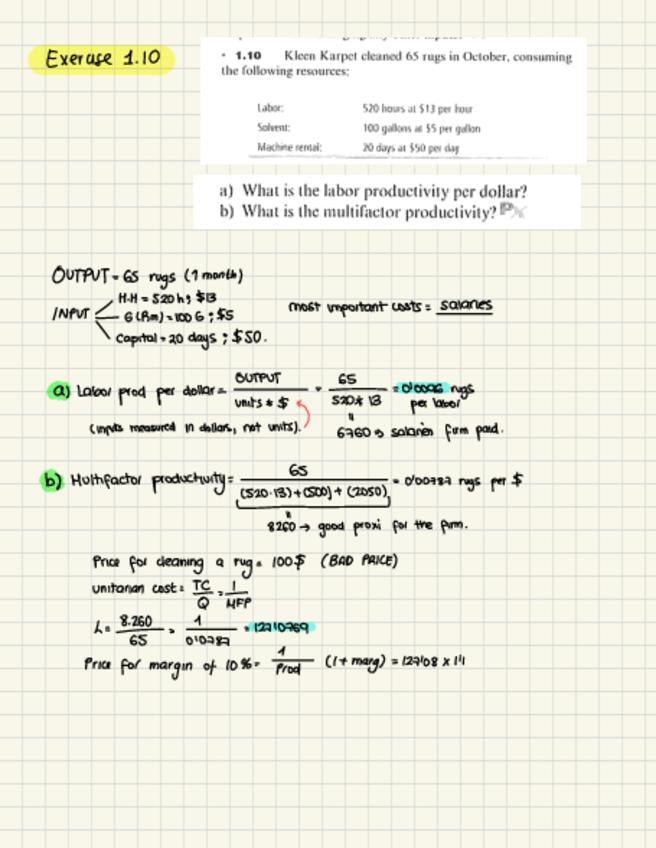 Exercise 1.10
• 1.10 Kleen Karpet cleaned 65 rugs in October, consuming
the following resources:
Labor: 520 hours at $13 per hour
Solvent: 100 gallons at $5 per gallon
Machine rental: 20 days at $50 per day
a) What is the labor productivity per dollar?
b) What is the multifactor productivity?
OUTPUT = 65 rugs (1 month)
INPUT
H.H = 520 h; $13
G (Rm) = 100 G; $5
Capital = 20 days; $50.
most important costs = salaries
a) Labor prod per dollar = OUTPUT / units * $ = 65 / 520 * 13 = 0'0096 rugs
per labor
(inputs measured in dollars, not units).
6760 → salaries firm paid.
b) Multifactor productivity = 65 / (520·13)+(500)+(2050) = 0'00787 rugs per $
8260 → good proxi for the firm.
Price for cleaning a rug = 100$ (BAD PRICE)
unitarian cost = TC / Q = 1 / MFP
= 8.260 / 65 = 1 /
Price for margin of 10% = 1 / Prod (1 + marg) = 127'08 x 1'1